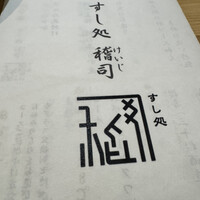 すし処 稽司
けいじ
すし処